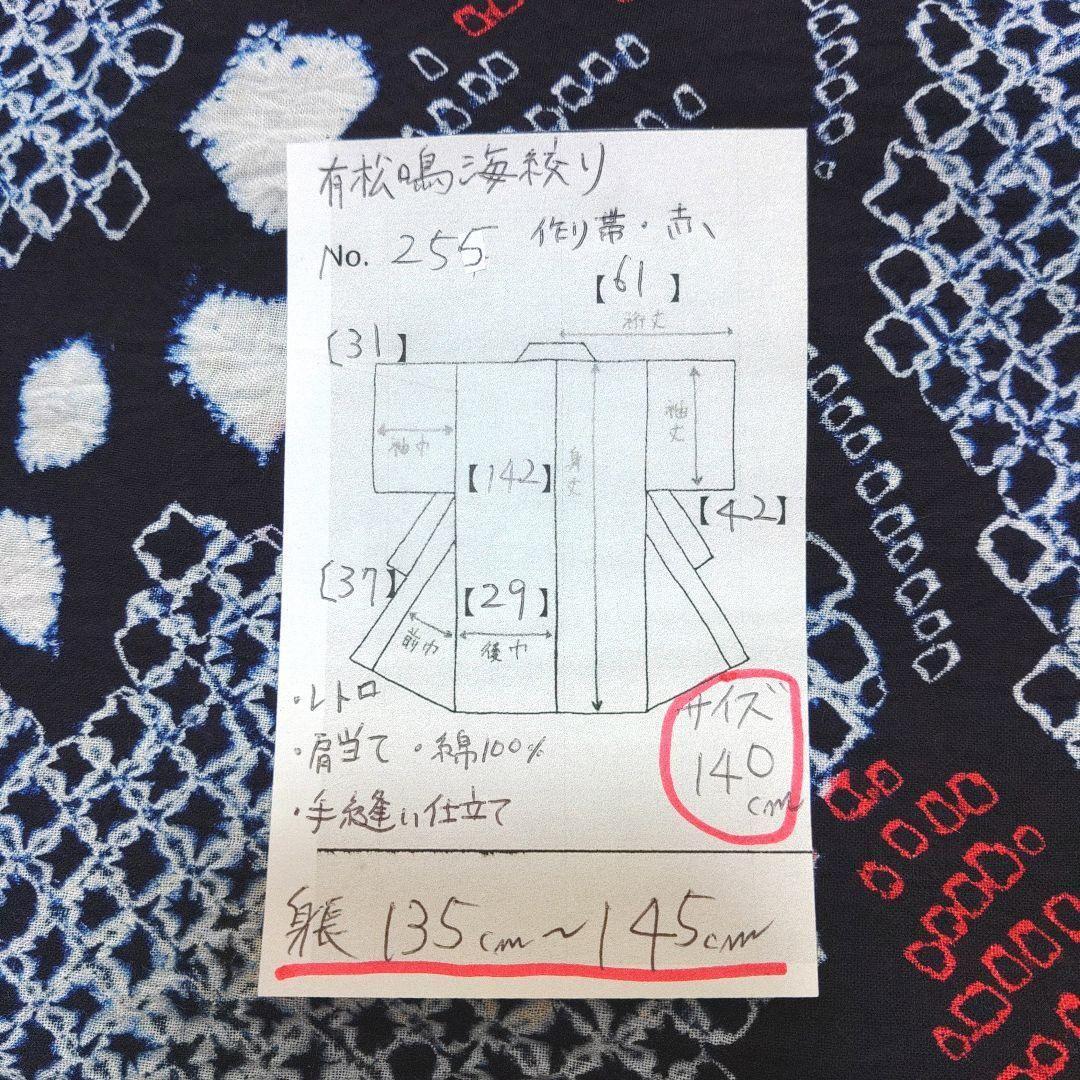 有松鳴海絞り
No. 255 作り帯・赤
【61】
裄丈
【31】
袖巾
袖丈
身丈
【142】
【42】
【37】
【29】
前巾
後巾
・レトロ
・肩当て ・綿100%
・手縫い仕立て
サイズ
140
cm
身長 135cm~145cm